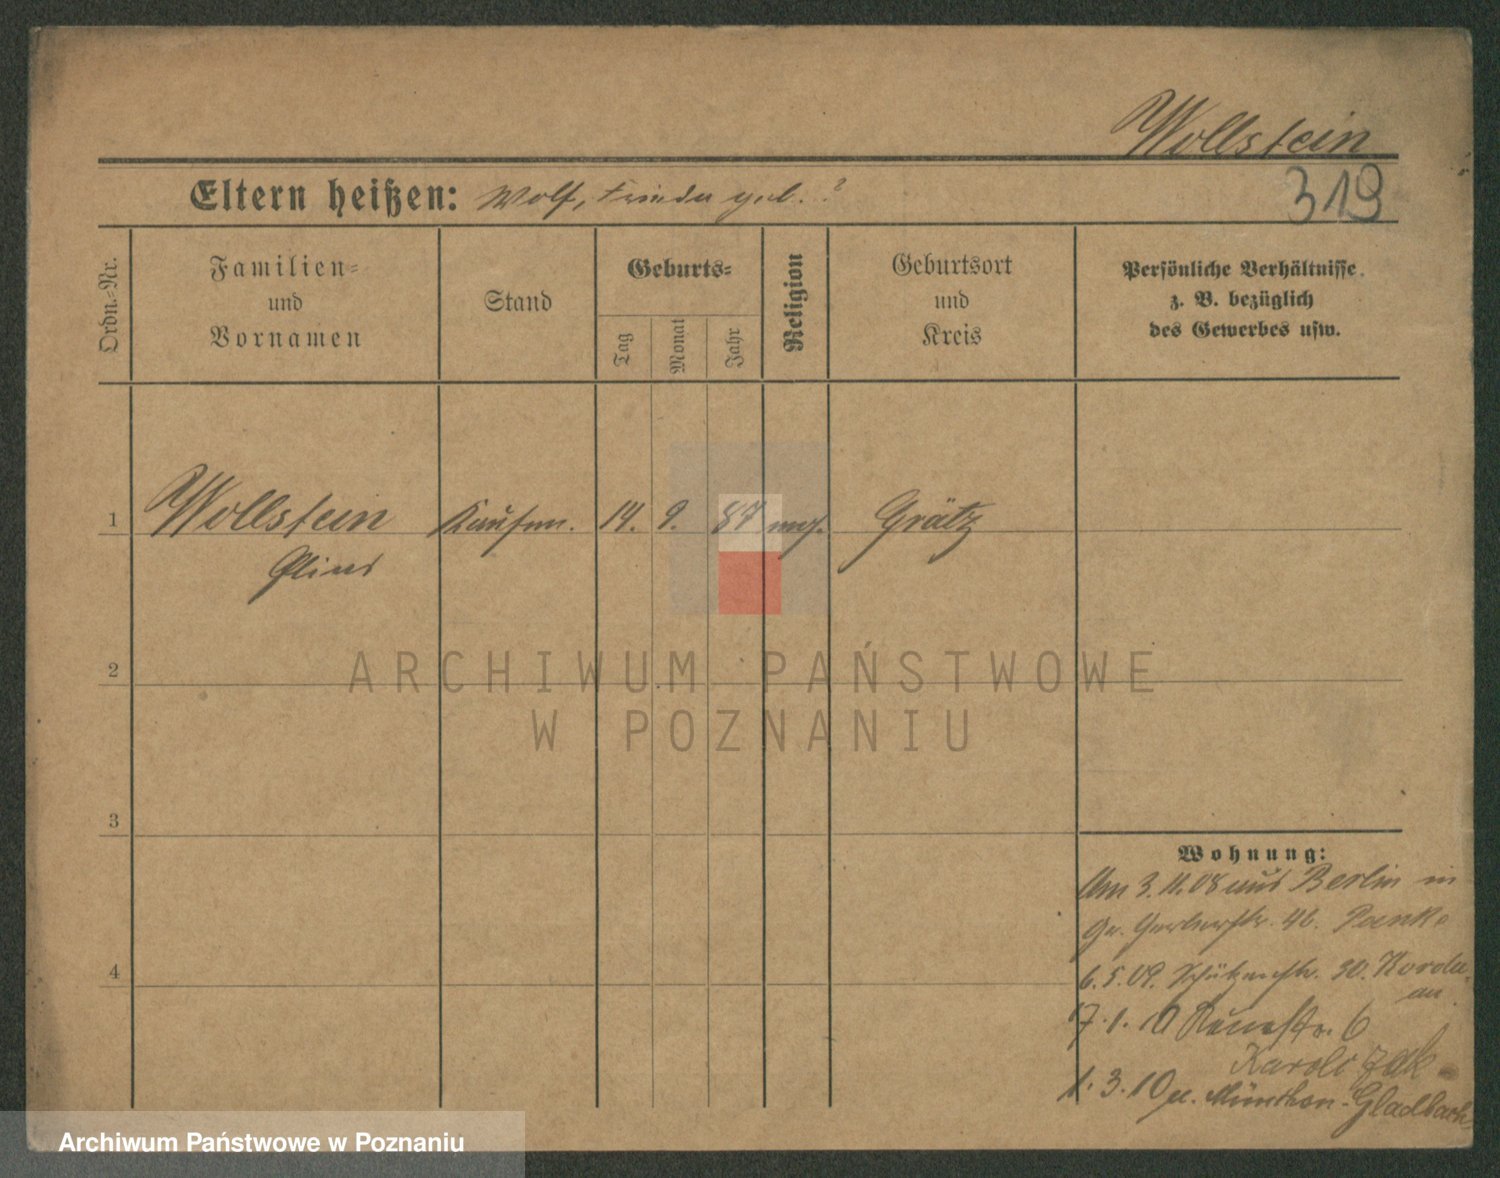 Wollstein
Eltern heißen: Wolf, Frieda geb. ?
319
Ordn.-Nr.
Familien-
und
Vornamen
Stand
Geburts-
Tag
Monat
Jahr
Religion
Geburtsort
und
Kreis
Persönliche Verhältnisse
z. B. bezüglich
des Gewerbes usw.
1 Wollstein Kaufm. 14. 9. 87 Grätz
2
ARCHIWUM PAŃSTWOWE
W POZNANIU
3
Wohnung:
Am 3.11.08 aus Berlin in
Gr. Gerberstr. 46.
4
6.5.09. Schützenstr. 30.
17.1.10 6
1.3.10 München-Gladbach
Archiwum Państwowe w Poznaniu